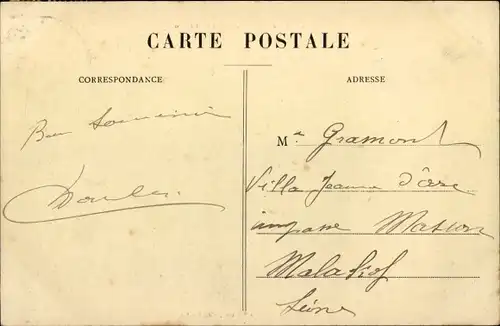 CARTE POSTALE
CORRESPONDANCE
ADRESSE
Bon Souvenir
Ma Gramont
Villa Jeanne d'Arc
impasse Masson
Malakof
Seine